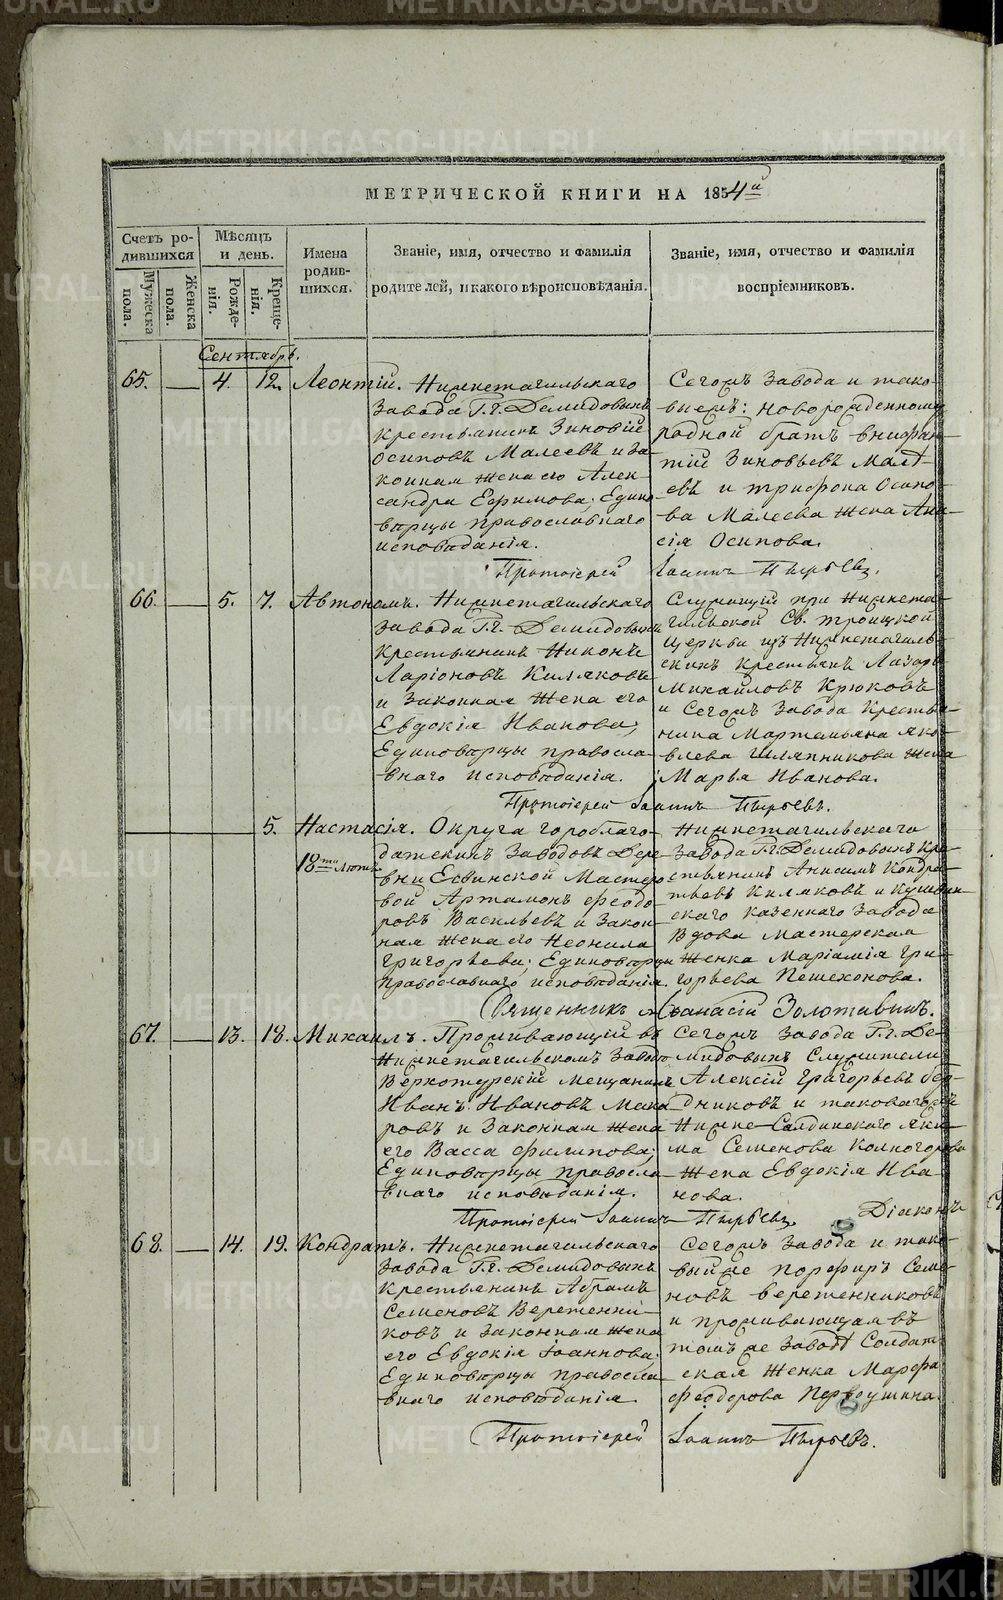 МЕТРИЧЕСКОЙ КНИГИ НА 1854й
Счетъ ро-
дившихся
Мужеска пола.
Женска пола.
Мѣсяцъ
и день.
Рожде-
нія.
Креще-
нія.
Имена
родив-
шихся.
Званіе, имя, отчество и фамилія
родителей, и какого вѣроисповѣданія.
Званіе, имя, отчество и фамилія
воспріемниковъ.
Сентябрь.
65. — 4. 12. Леонтій.
Нижнетагильскаго
завода Г.г. Демидовыхъ
крестьянинъ Зиновій
Осиповъ Малеевъ и за
конная жена его Алек
сандра Ефимова; Едино
верцы православнаго
исповеданія.
Сегожъ завода и тако
выежъ: новорожденному
родной братъ
Зиновьевъ Мале
евъ и Трифона Осипо
ва Малеева жена
Осипова.
Протоіерей Іоаннъ Пырьевъ.
66. — 5. 7. Автономъ.
Нижнетагильскаго
завода Г.г. Демидовыхъ
крестьянинъ Никонъ
Ларіоновъ Киляковъ
и законная жена его
Евдокія Иванова;
Единоверцы правосла
внаго исповеданія.
Служащій при Нижнета
гильской Св. Троицкой
церкви изъ Нижнетагиль
скихъ крестьянъ Лазарь
Михайловъ Крюковъ
и Сегожъ завода крестья
нина Мартемьяна Яко
влева Шляпникова жена
Марья Иванова.
Протоіерей Іоаннъ Пырьевъ.
5. Настасія.
18ти лѣтъ
Округа гороблаго
датскихъ заводовъ дере
вни Есвинской Мастеро
вой Артамонъ Федо
ровъ Васильевъ и закон
ная жена его Неонила
Григорьева; Единоверцы
православнаго исповеданія.
Нижнетагильскаго
завода Г.г. Демидовыхъ кре
стьянинъ Анисимъ Кондра
тьевъ Киляковъ и Кушвин
скаго казеннаго завода
вдова Мастерская
женка Маріамія Гри
горьева Пешехонова.
Священникъ Афанасій Золотавинъ.
67. — 13. 18. Михаилъ.
Проживающій въ
Нижнетагильскомъ заводе
Верхотурскій мещанинъ
Иванъ Ивановъ Мака
ровъ и законная жена
его Васса Филипова;
Единоверцы правосла
внаго исповеданія.
Сегожъ завода Г.г. Де
мидовыхъ служители
Алексій Григорьевъ
и таковагожъ
Нижне-Салдинскаго Яки
ма Семенова Колногорова
жена Евдокія Ива
нова.
Протоіерей Іоаннъ Пырьевъ. Діаконъ
68. — 14. 19. Кондратъ.
Нижнетагильскаго
завода Г.г. Демидовыхъ
крестьянинъ Абрамъ
Семеновъ Вереженни
ковъ и законная жена
его Евдокія Іоаннова;
Единоверцы правосла
внаго исповеданія.
Сегожъ завода и тако
выйже Порфиръ Семе
новъ Береженниковъ
и проживающая въ
томъ же заводе Солдат
ская женка Марфа
Феодорова Первушина.
Протоіерей Іоаннъ Пырьевъ.
METRIKI.GASO-URAL.RU